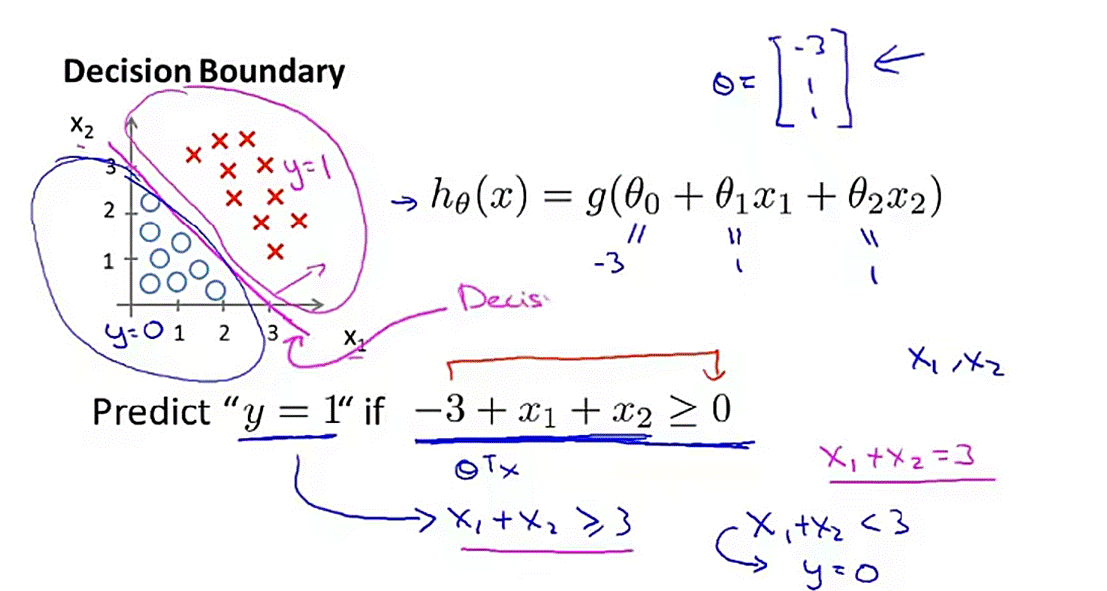 Decision Boundary
θ = [-3 1 1] ←
x₂
3
2
1
y=1
y=0 1 2 3 x₁
→ hθ(x) = g(θ₀ + θ₁x₁ + θ₂x₂)
-3 1 1
Decis
x₁, x₂
Predict “y = 1“ if −3 + x₁ + x₂ ≥ 0
θᵀx
x₁ + x₂ = 3
x₁ + x₂ ≥ 3
x₁ + x₂ < 3
y = 0